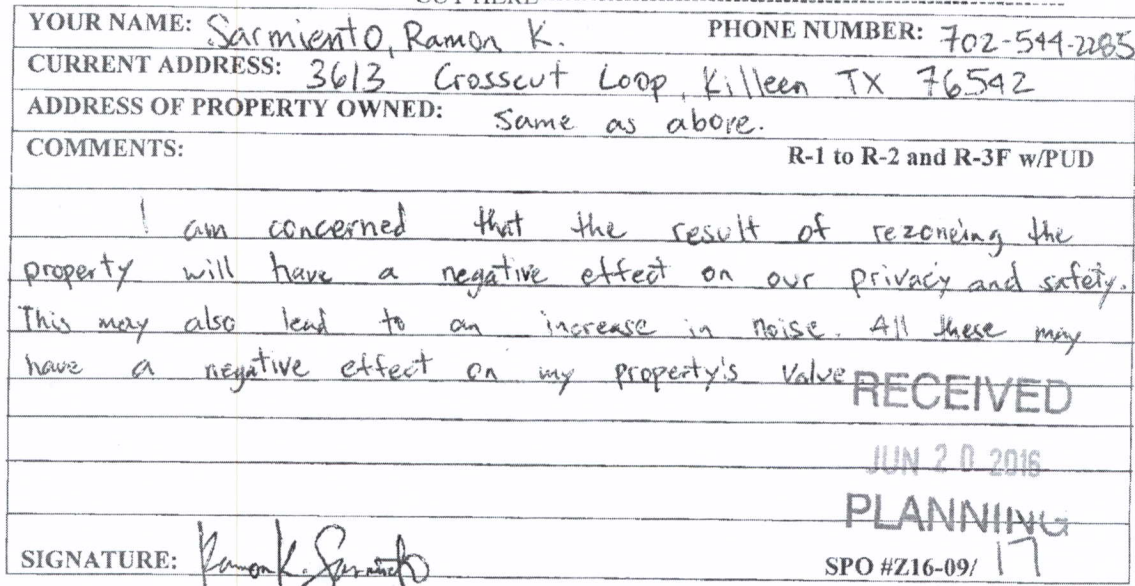 CUT HERE
YOUR NAME: Sarmiento, Ramon K. PHONE NUMBER: 702-544-2285
CURRENT ADDRESS: 3613 Crosscut Loop, Killeen TX 76542
ADDRESS OF PROPERTY OWNED: Same as above.
COMMENTS: R-1 to R-2 and R-3F w/PUD
I am concerned that the result of rezoneing the
property will have a negative effect on our privacy and safety.
This may also lead to an increase in noise. All these may
have a negative effect on my property's value
RECEIVED
JUN 20 2016
PLANNING
SIGNATURE: Ramon K. Sarmiento SPO #Z16-09/ 17